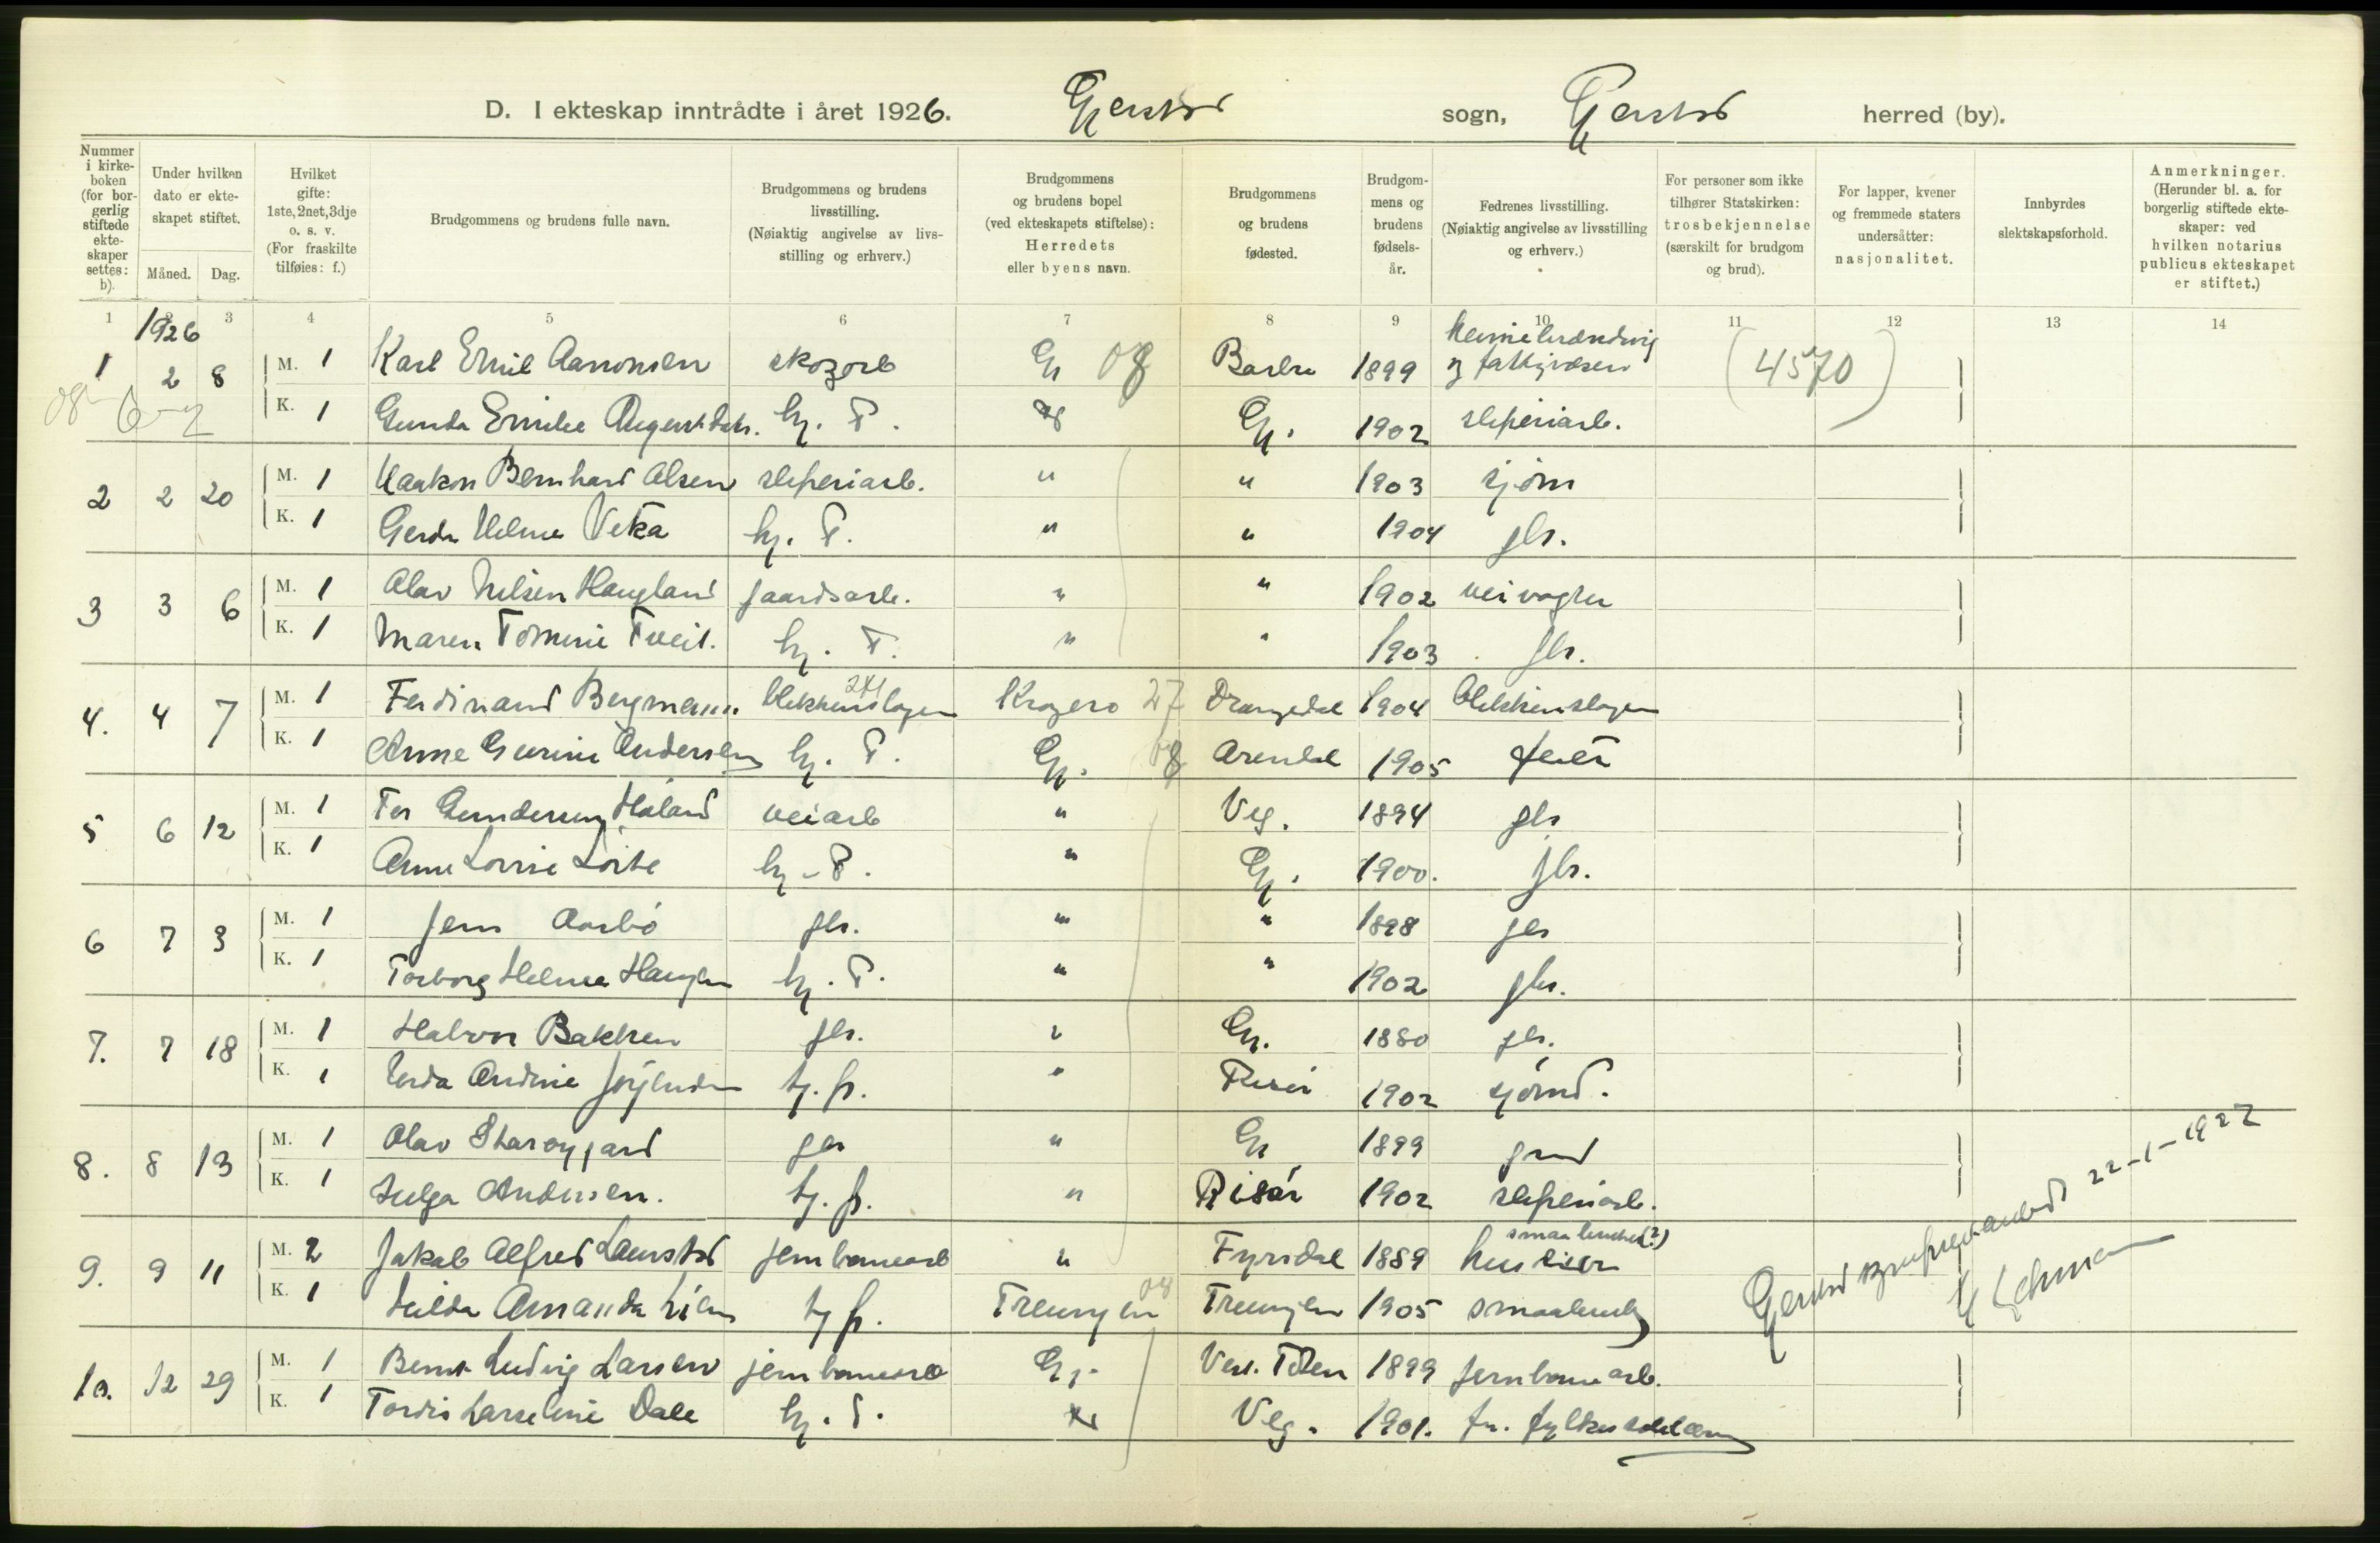 D. I ekteskap inntrådte i året 1926. Gjerstad sogn, Gjerstad herred (by).
Nummer i kirkeboken (for borgerlig stiftede ekteskaper settes: b).
Under hvilken dato er ekteskapet stiftet.
Måned. Dag.
Hvilket gifte: 1ste, 2net, 3dje o. s. v. (For fraskilte tilføies: f.)
Brudgommens og brudens fulle navn.
Brudgommens og brudens livsstilling. (Nøiaktig angivelse av livsstilling og erhverv.)
Brudgommens og brudens bopel (ved ekteskapets stiftelse): Herredets eller byens navn.
Brudgommens og brudens fødested.
Brudgommens og brudens fødselsår.
Fedrenes livsstilling. (Nøiaktig angivelse av livsstilling og erhverv.)
For personer som ikke tilhører Statskirken: trosbekjennelse (særskilt for brudgom og brud).
For lapper, kvener og fremmede staters undersåtter: nasjonalitet.
Innbyrdes slektskapsforhold.
Anmerkninger. (Herunder bl. a. for borgerlig stiftede ekteskaper: ved hvilken notarius publicus ekteskapet er stiftet.)
1 2 3 4 5 6 7 8 9 10 11 12 13 14
1926
1 2 8 M. 1 Karl Emil Aanonsen skogarb Gj 08 1899 (4570)
K. 1 Gunda Emilie hj. T. Gj. 1902 sliperiarb.
2 2 20 M. 1 Haakon Bernhard Olsen sliperiarb. " " 1903 sjøm
K. 1 Gerda Helme Veka hj. T. " " 1904 gbr.
3 3 6 M. 1 Olav Nilsen Haugland gaardsarb. " " 1902 veivogter
K. 1 Maren Tomine Tveit. hj. T. " " 1903 gbr.
4. 4 7 M. 1 Ferdinand Bergmann blikkenslager Kragerø 27 Drangedal 1904 blikkenslager
K. 1 Anne Gurine Andersen hj. T. Gj. 08 Arendal 1905
5 6 12 M. 1 Tor Gundersen Haland veiarb " Veg. 1894 gbr
K. 1 Anne Lovise hj. T. " Gj. 1900. gbr.
6 7 3 M. 1 Jens Aasbø gbr. " " 1898 gbr
K. 1 Torborg Helme Haugen hj. T. " " 1902 gbr.
7. 7 18 M. 1 Halvor Bakken gbr. " Gj. 1880 gbr.
K. 1 Andine tj. p. " Risør 1902 sjømd.
8. 8 13 M. 1 Olav gbr " Gj 1899
K. 1 Helga Andersen. tj. p. " Risør 1902 sliperiarb.
9. 9 11 M. 2 Jakob Alfred jernbanearb " Fyrisdal 1889 smaabruker(?)
K. 1 Hilda Amanda Lien tj p. Treungen 08 Treungen 1905 smaabruk
10. 12 29 M. 1 Bernt Ludvig Larsen jernbanearb Gj. Vest. Toten 1899 jernbanearb.
K. 1 Tordis Larseline Dale hj. T. Veg. 1901.
Gjerstad 22-1-1927